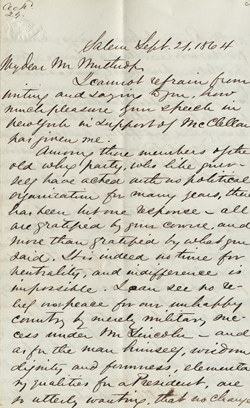 Salem Sept. 21, 1864
My dear Mr Winthrop,
I cannot refrain from
writing and saying to you, how
much pleasure your speech in
New York in support of McClellan
has given me.
Among those members of the
old whig party, who like your-
self have acted with no political
organization for many years, there
has been but one response - all
are gratified by your course, and
more than gratified by what you
said. It is indeed no time for
neutrality, and indifference is
impossible. I can see no re-
lief nor peace for our unhappy
country by merely military suc-
cess under Mr Lincoln - and
as for the man himself, wisdom
dignity and firmness, elementa
ry qualities for a President, are
so utterly wanting, that no chang